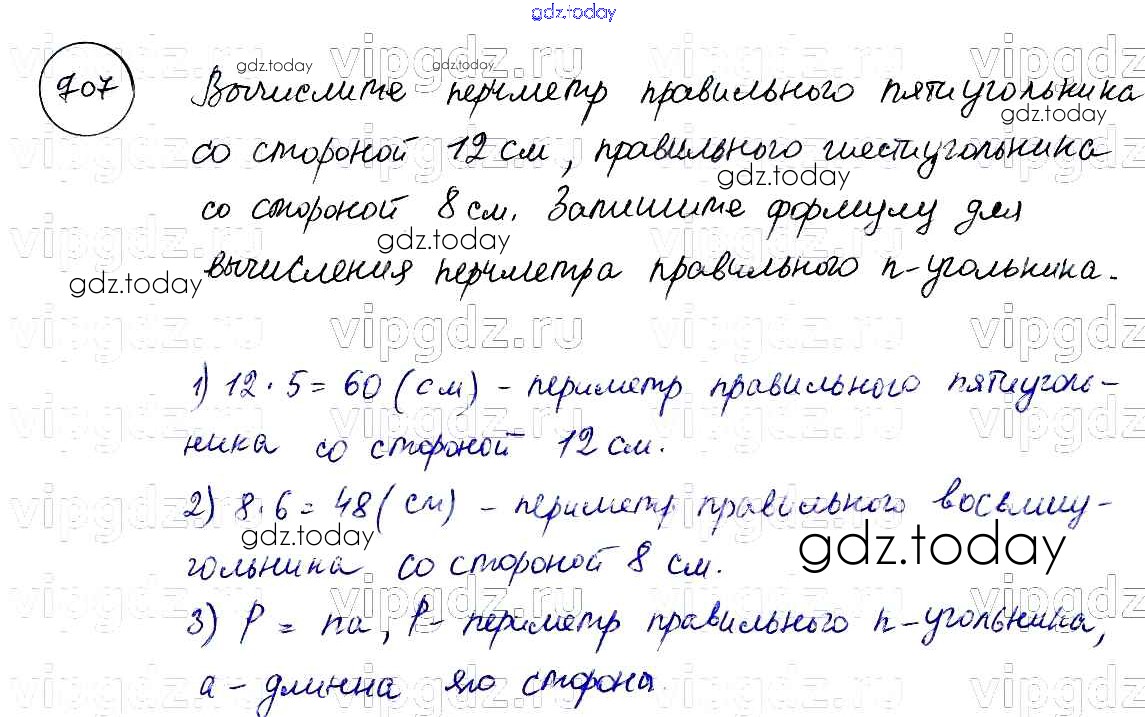 gdz.today
707
Вычислите периметр правильного пятиугольника
со стороной 12 см, правильного шестиугольника
со стороной 8 см. Запишите формулу для
вычисления периметра правильного n-угольника.
1) 12 · 5 = 60 (см) - периметр правильного пятиуголь-
ника со стороной 12 см.
2) 8 · 6 = 48 (см) - периметр правильного восьмиу-
гольника со стороной 8 см.
3) P = na, P - периметр правильного n-угольника,
a - длинна его стороны.
gdz.today
gdz.today
gdz.today
gdz.today
gdz.today
gdz.today
gdz.today
gdz.today
vipgdz.ru
vipgdz.ru
vipgdz.ru
vipgdz.ru